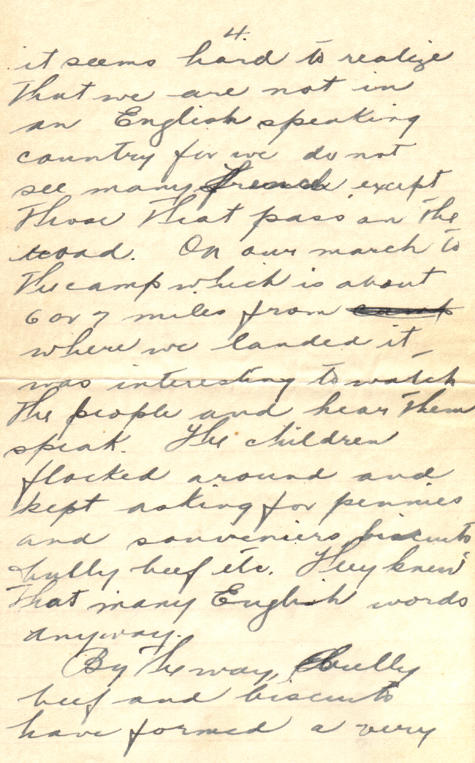 4.
it seems hard to realize
that we are not in
an English speaking
country for we do not
see many French except
those that pass on the
road. On our march to
the camp which is about
6 or 7 miles from camp
where we landed it
was interesting to watch
the people and hear them
speak. The children
flocked around and
kept asking for pennies
and souveniers biscuits
bully beef etc. They knew
that many English words
anyway.
By the way, bully
beef and biscuits
have formed a very